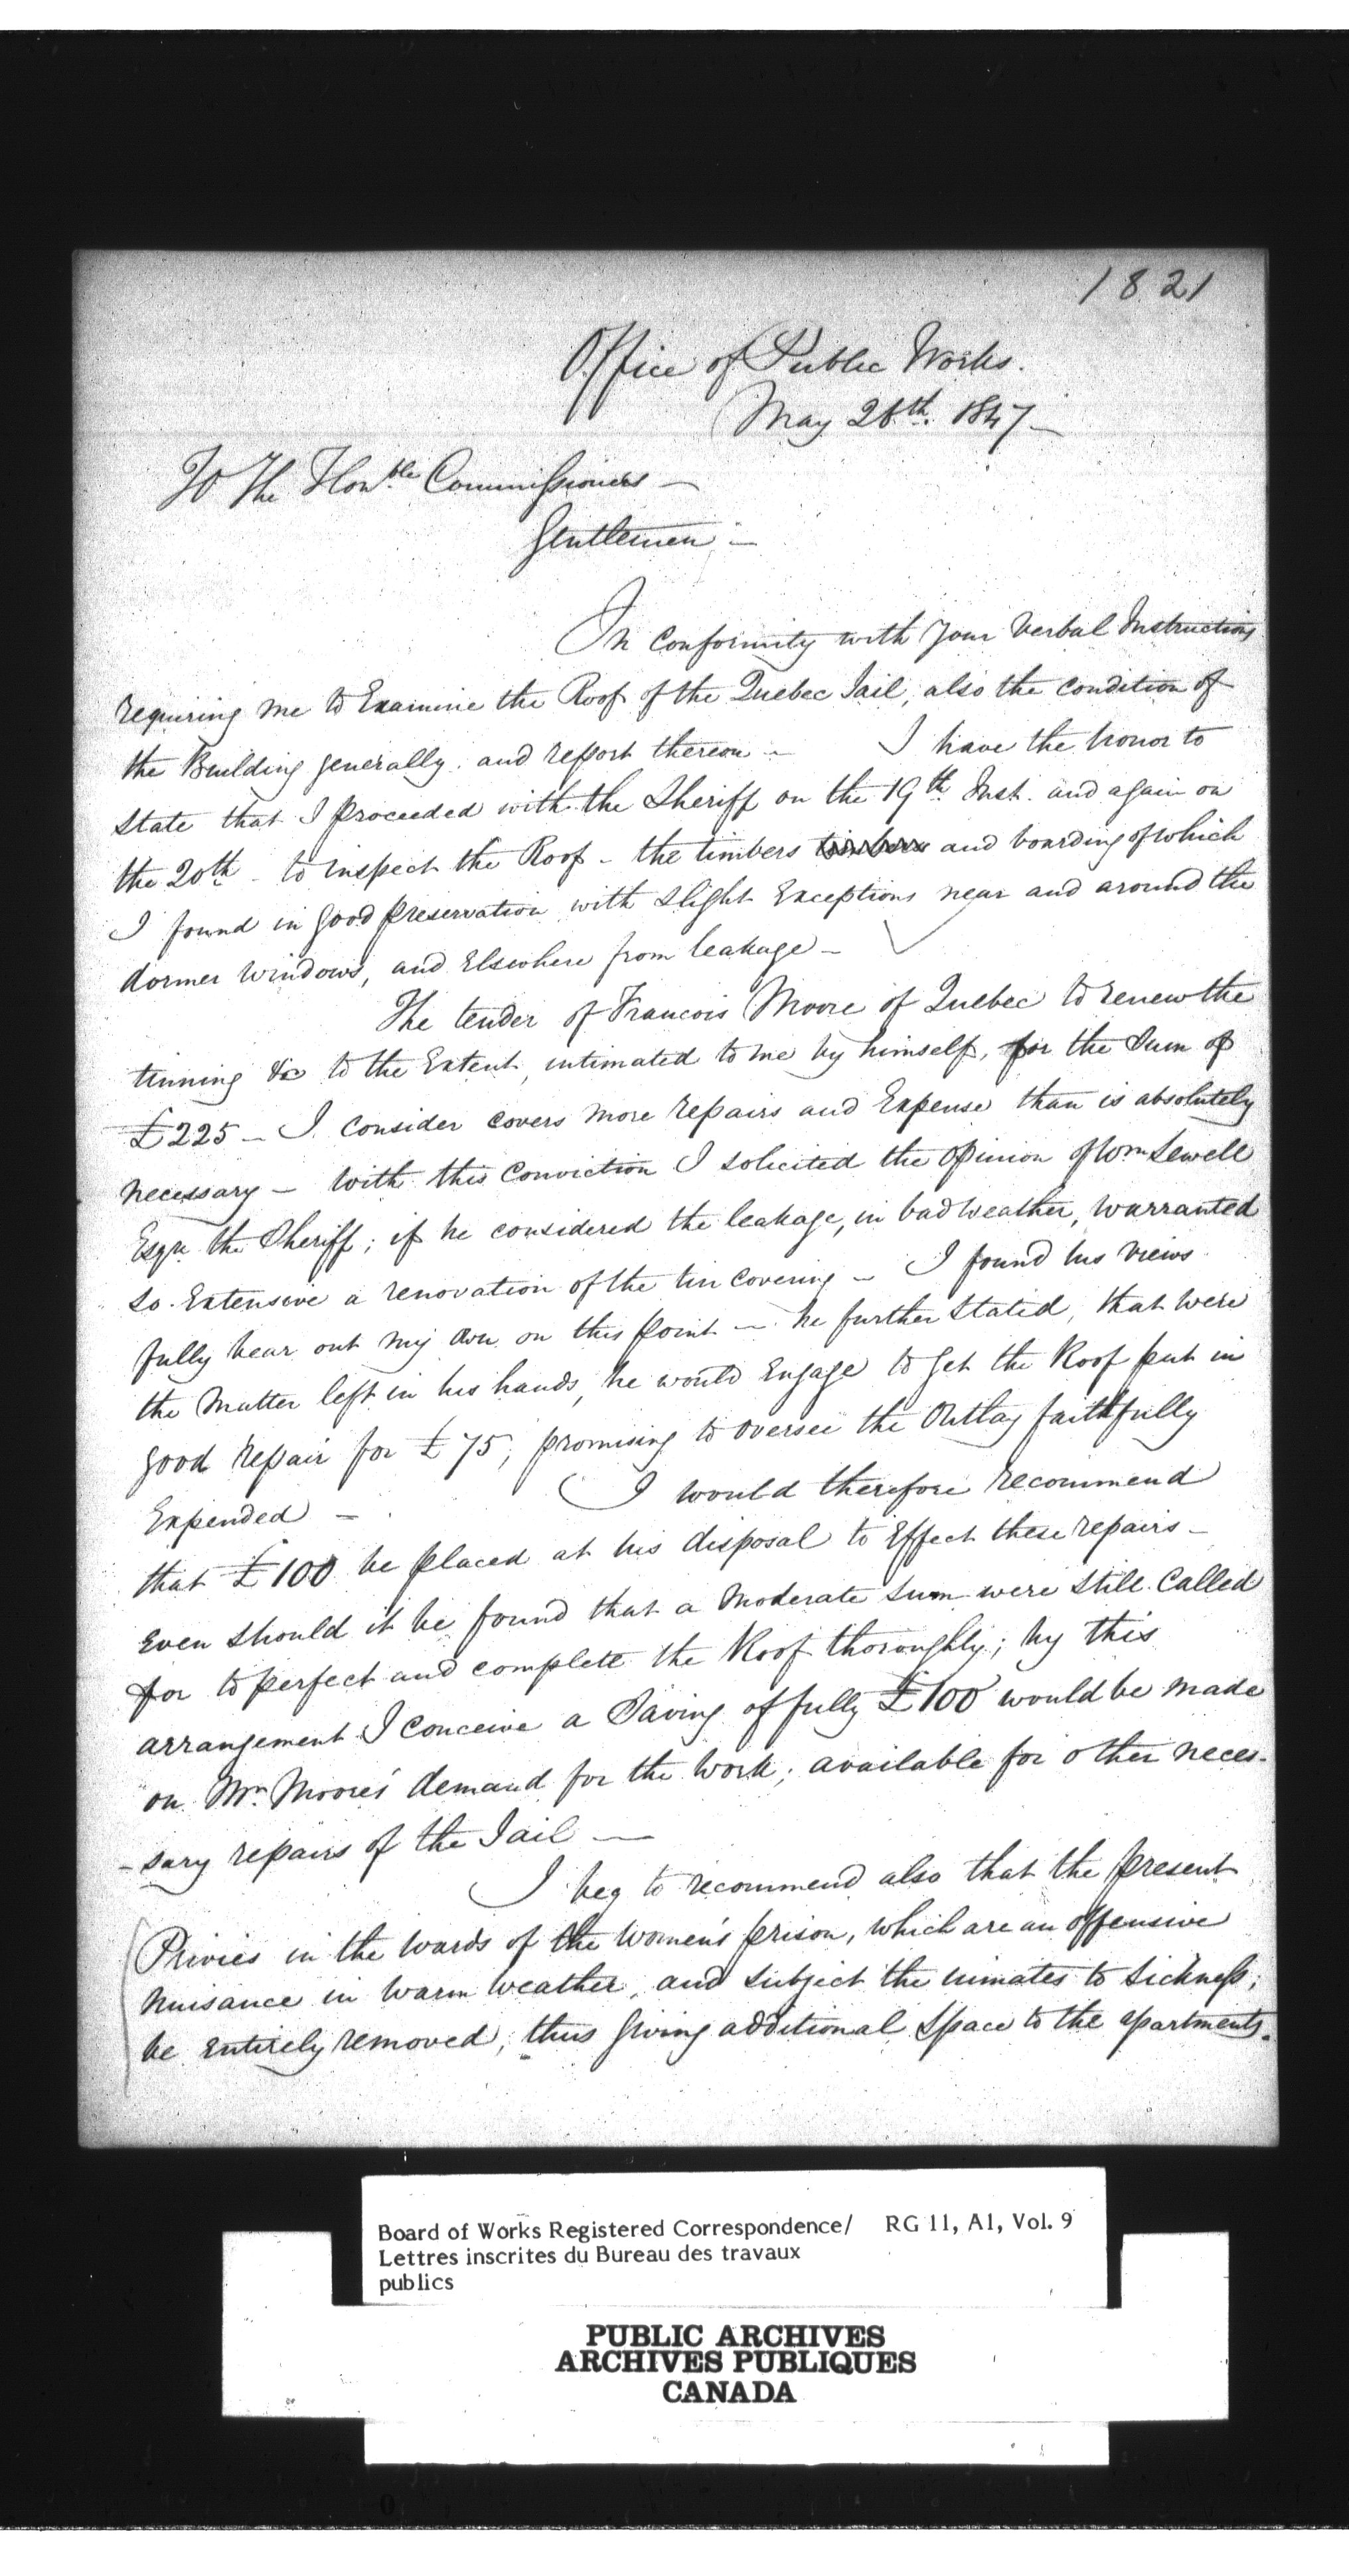 1821
Office of Public Works.
May 26th. 1847 —
To The Honble Commissioners —
Gentlemen, —
In conformity with your verbal Instructions
requiring me to Examine the Roof of the Quebec Jail, also the condition of
the Building generally. and report thereon — I have the honor to
State that I proceeded with the Sheriff on the 19th Inst. and again on
the 20th — to inspect the Roof — the timbers timbers and boarding of which
I found in good preservation with slight Exceptions near and around the
dormer windows, and Elsewhere from leakage —
The tender of Francois Moore of Quebec to renew the
tinning &c to the Extent, intimated to me by himself, for the Sum of
£225 — I consider covers more repairs and Expense than is absolutely
necessary — With this Conviction I solicited the opinion of Wm Sewell
Esqre the Sheriff; if he considered the leakage, in bad weather, warranted
so Extensive a renovation of the tin covering — I found his views
fully bear out my own on this point — he further Stated, that were
the matter left in his hands, he would Engage to get the Roof put in
good repair for £75; promising to oversee the Outlay faithfully
Expended — I would therefore recommend
that £100 be placed at his disposal to Effect these repairs —
Even should it be found that a moderate sum were still called
for to perfect and complete the Roof thoroughly; by this
arrangement I conceive a Saving of fully £100 would be made
on Mr. Moore's demand for the work; available for other neces-
-sary repairs of the Jail —
I beg to recommend also that the present
Privies in the wards of the Women's prison, which are an offensive
nuisance in warm weather, and subject the inmates to Sickness;
be Entirely removed; thus giving additional Space to the apartments.
Board of Works Registered Correspondence/ RG 11, A1, Vol. 9
Lettres inscrites du Bureau des travaux
publics
PUBLIC ARCHIVES
ARCHIVES PUBLIQUES
CANADA